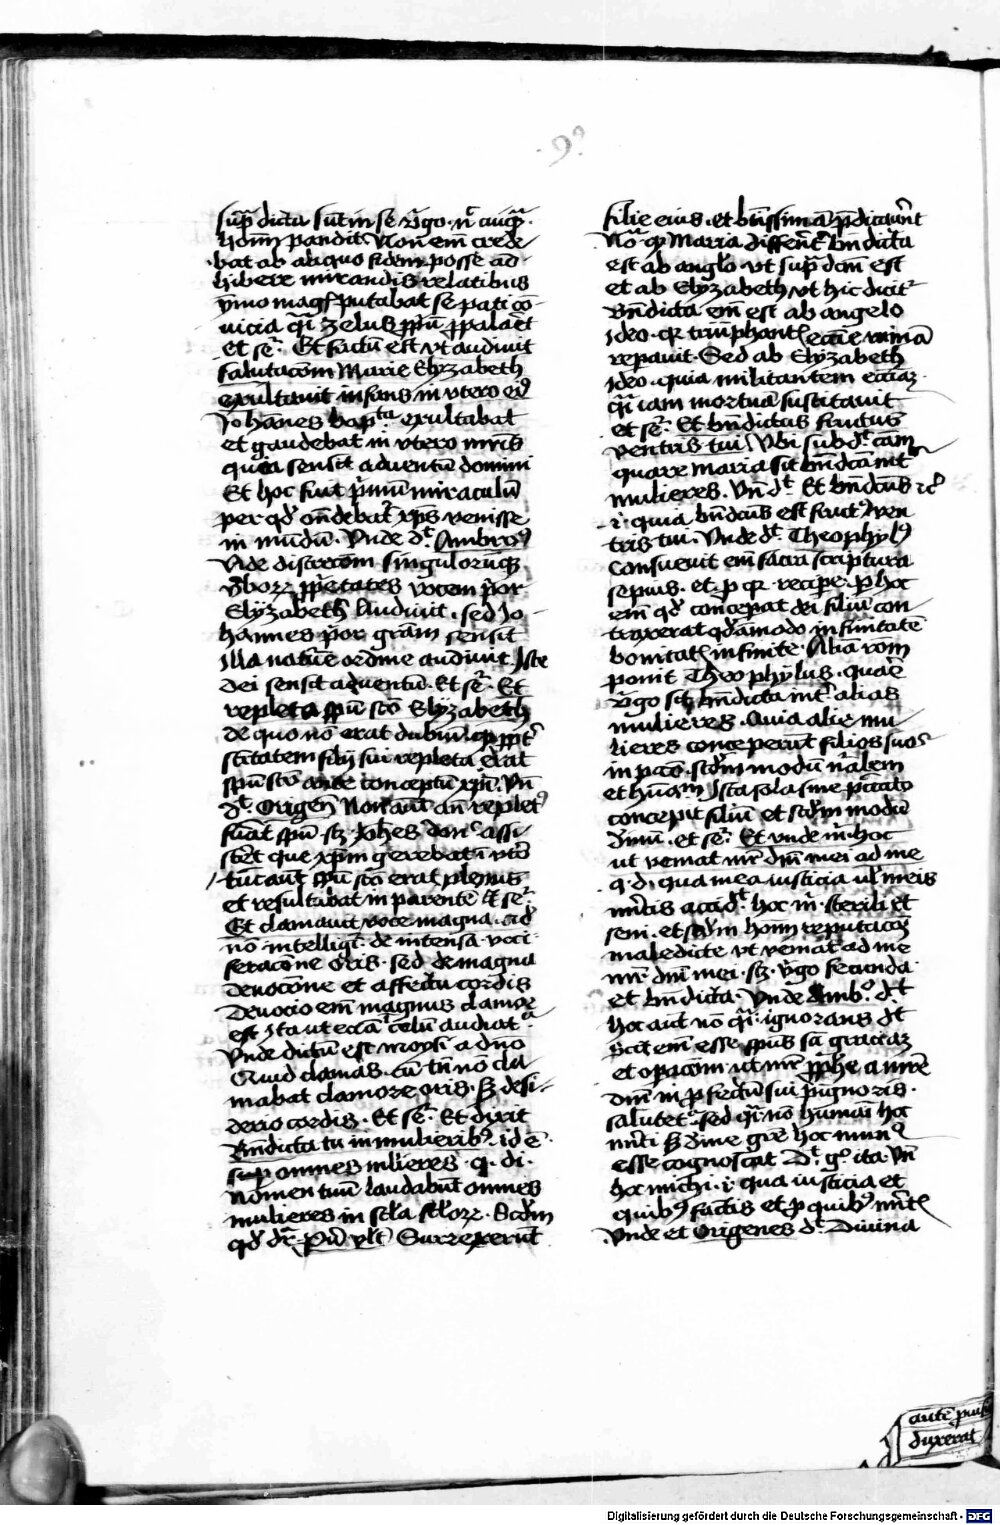 .9º.
sup̄ dicta sūt in se v̄go. nͨ cuiq̄ꝫ.
hōīm pandit Non em̄ crede
bat ab aliquo fidem posse ad
hibere mirandis relatibus
ymo mag putabat se pati cō
uicia
et seͬ. Et factū est vt audiuit
salutacōm Marie Elyzabeth
exultauit infans in vtero eiꝰ
Johānes bapᵗᵃ exultabat
et gaudebat in vtero mr̄is
quia sensit aduentū domini
Et hoc fuit p̄mū miraculū
per qd̄ on̄debatͬ xp̄s venisse
in mūdū. Vnde dͭ Ambroꝰ
Vide discrecōm singulorūqꝫ
v̄boꝝ pp̄etates vocem p̄or
Elyzabeth Audiuit. sed Jo
hannes p̄or grām sensit
Illa nature ordine audiuit Iste
dei sensit aduentū. Et seͬ. Et
repleta sp̄u sc̄o Elyzabeth
de quo nō erat dubiū. qͥ pp̄tͬ
sc̄titatem filij sui repleta erat
sp̄u sc̄o ante conceptū xp̄i. Vn̄
dͭ Origen̄ Non aūt an̄ repletꝰ
fuāt sp̄u sꝫ Joh̄es donͨ assi
stet que xp̄m gerebat ī vtͦ
tūc aūt sp̄u sc̄o erat plenus
et resultabat in parentē Et seͬ.
Et clamauit voce magna
nō intelligͭ de intensa voci
feracōne oris. sed de magna
deuocōne et affectu cordis
Deuocio em̄ magnus clamor
est Ita ut celū audiatͬ
Vnde dictū est moysi a dn̄o
Quid clamas. cū tn̄ nō cla
mabat clamore oris. sꝫ desi
derio cordis. Et seͬ. Et dixit
Bn̄dicta tu in mulieribꝰ. id ē
sup̄ omnes mlieres. q. di.
Nomen tuū laudabūt omnes
mulieres in sc̄la sc̄loꝝ. Scd̄m
qd̄ drͬ Surrexerūt
filie eius. et btīssimā p̄dicauer̄t
Nōͣ qꝫ Maria differēt bn̄dicta
est ab anglo. vt sup̄ dcm̄ est
et ab Elyzabeth vt hic dicitͬ
Bn̄dicta em̄ est ab angelo
Ideo. qꝛ triūphantē eccīe ruinā
repauit. Sed ab Elyzabeth
Ideo. quia militantem eccīaꝫ.
q̄i iam mortuā suscitauit
et seͬ. Et bn̄dictus fructus
ventris tui Vbi subdͭ cām
quare maria sit bn̄dcā int̄
mulieres. Vn̄ dͭ. Et bn̄dcūs ⁊c̄
.i. quia bn̄dcūs est fructꝰ ven
tris tui. Vnde dͭ Theophylꝰ
Consueuit em̄ sacra scriptura
sepius. et. p qꝛ recipe. p hoc
em̄ qd̄ concepat dei filiū con
traxerat qd̄āmodo infinitatē
bonitatͥ infinite. Aliā rōm
ponit Theophylus. quare
v̄go sit bn̄dicta int̄ alias
mulieres. Quia alie mu
lieres conceperūt filios suos
in pcc̄o. scd̄m modū nr̄alem
et hūam Ista sola sine pcc̄ato
concepit filiū et scd̄m modū
dīuinū. et seͬ. Et vnde m̄ hoc
ut veniat mr̄ dn̄i mei ad me
q. d. qua mea iusticia ul̄ meis
mīitis accidͭ hoc m̄. sterili et
seni. et scd̄m hom̄ reputacōꝫ
maledicte vt veniāt ad me
mr̄ dn̄i mei. sꝫ v̄go fecunda
et bn̄dicta. Vnde Ambꝰ. dͭ
hoc aūt nō q̄i ignorans dͭ
Scit em̄ esse sp̄us sc̄i graciaꝫ
et opacōm ut mr̄ pp̄he a mr̄e
dn̄i in pfectū sui pignoris.
salutetͬ. sed q̄i nō humani hoc
mīti sꝫ dīne gr̄e hoc munꝰ
esse cognoscat dͭ gͦ ita Vn̄
hoc michi. i. qua iusticia et
quibꝰ factis et p quibꝰ mīit
Vnde et Origenes dͭ Diuina
autē
duxerat
Digitalisierung gefördert durch die Deutsche Forschungsgemeinschaft - DFG